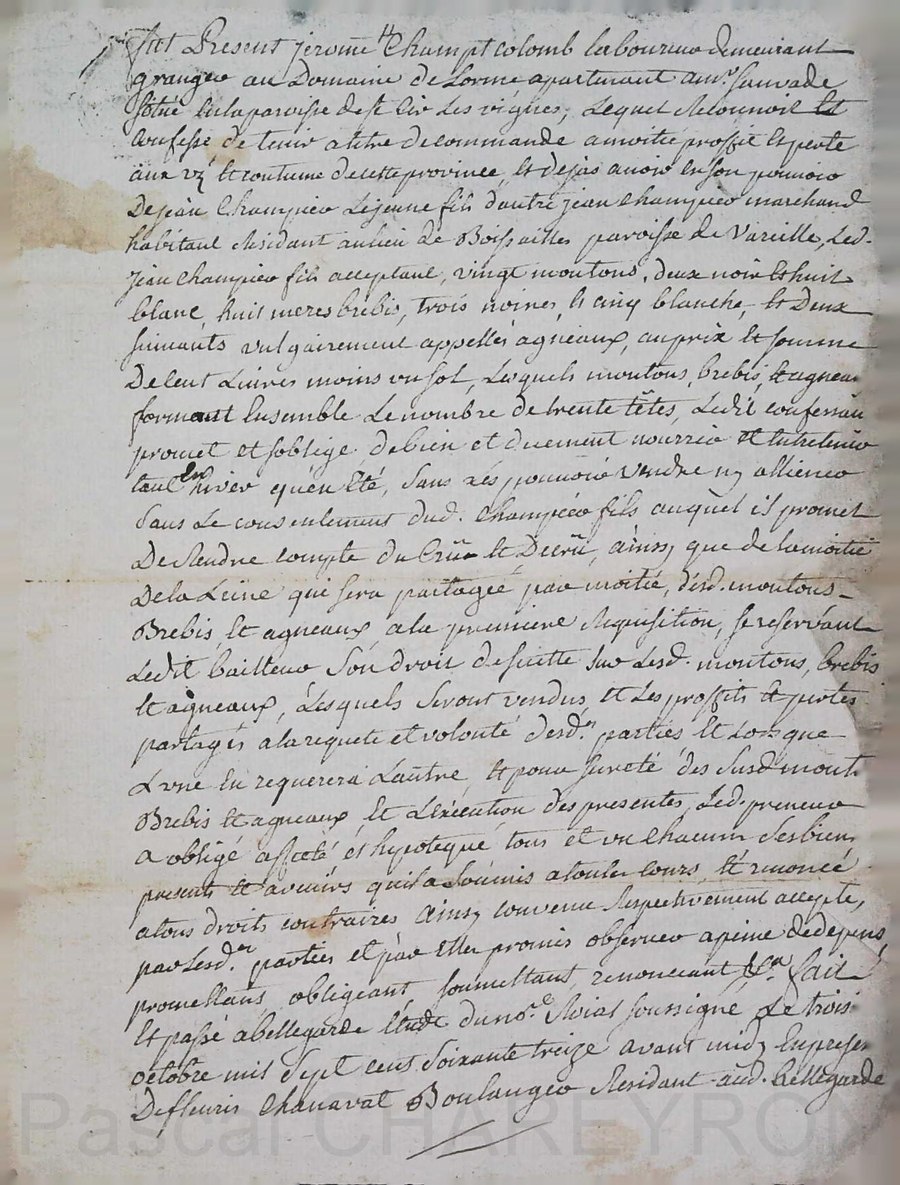 fut Present jerome Champt colomb laboureur demeurant
granger au Domaine de Lorme apartenant a mr. Sauvade
Sitüé En la paroisse de st Cir Les vignes, Lequel Reconnoit Et
Confesse de tenir a titre de commande a moitié proffit Et perte
aux Et coutume de cette province, Et dejas avoir En Son pouvoir
De jean Champier Lejeune fils d'autre jean Champier marchand
habitant Residant au lieu de Boissailles paroisse de Vareille, Led.
jean Champier fils acceptant, vingt moutons, deux noir Et huit
blanc, huit meres brebis, trois noires, Et cinq blanche, Et Deux
suivants vulgairement appellés agneaux, au prix Et somme
De Cent Livres moins un sol, Lesquels moutons, brebis, Et agneau
formant Ensemble Le nombre de trente têtes, Ledit confessant
promet et s'oblige de bien et duement nourrir Et Entretenir
tant En hiver qu'en Eté, Sans Les pouvoir Vendre ny alliener
Sans Le consentement dud. Champier fils auquel il promet
De Rendre compte du Crû Et Decrû, ainsy que de la moitié
De la Leine qui sera partagée par moitié, desd. moutons
Brebis Et agneaux, a la première Requisition, se reservant
Ledit bailleur Son droit de suitte sur Lesd. moutons, brebis
Et agneaux, Lesquels Seront vendus, Et Les proffits Et pertes
partagés a la requete et volonté desd. parties Et Lorsque
L'une En requerera L'autre, Et pour sureté des Susd. mout.
Brebis Et agneaux, Et L'Exécution des presentes, Led. preneur
a obligé afecté et hypotequé tous et un Chacun Ses biens
presents Et avenirs qu'il a Soumis a toutes Cours, Et renoncé
a tous droits contraires ainsy convenu Respectivement accepté,
par Lesd. parties et par Elles promis observer a peine de depens
promettans, obligeant soumettant, renonceant &a. fait
Et passé a bellegarde Etude du no.re Roial soussigné Le trois
octobre mil Sept cent Soixante treize avant midy En presen
De fleuris Chanavat Boulanger Residant aud. bellegarde
Pascal CHAREYRON